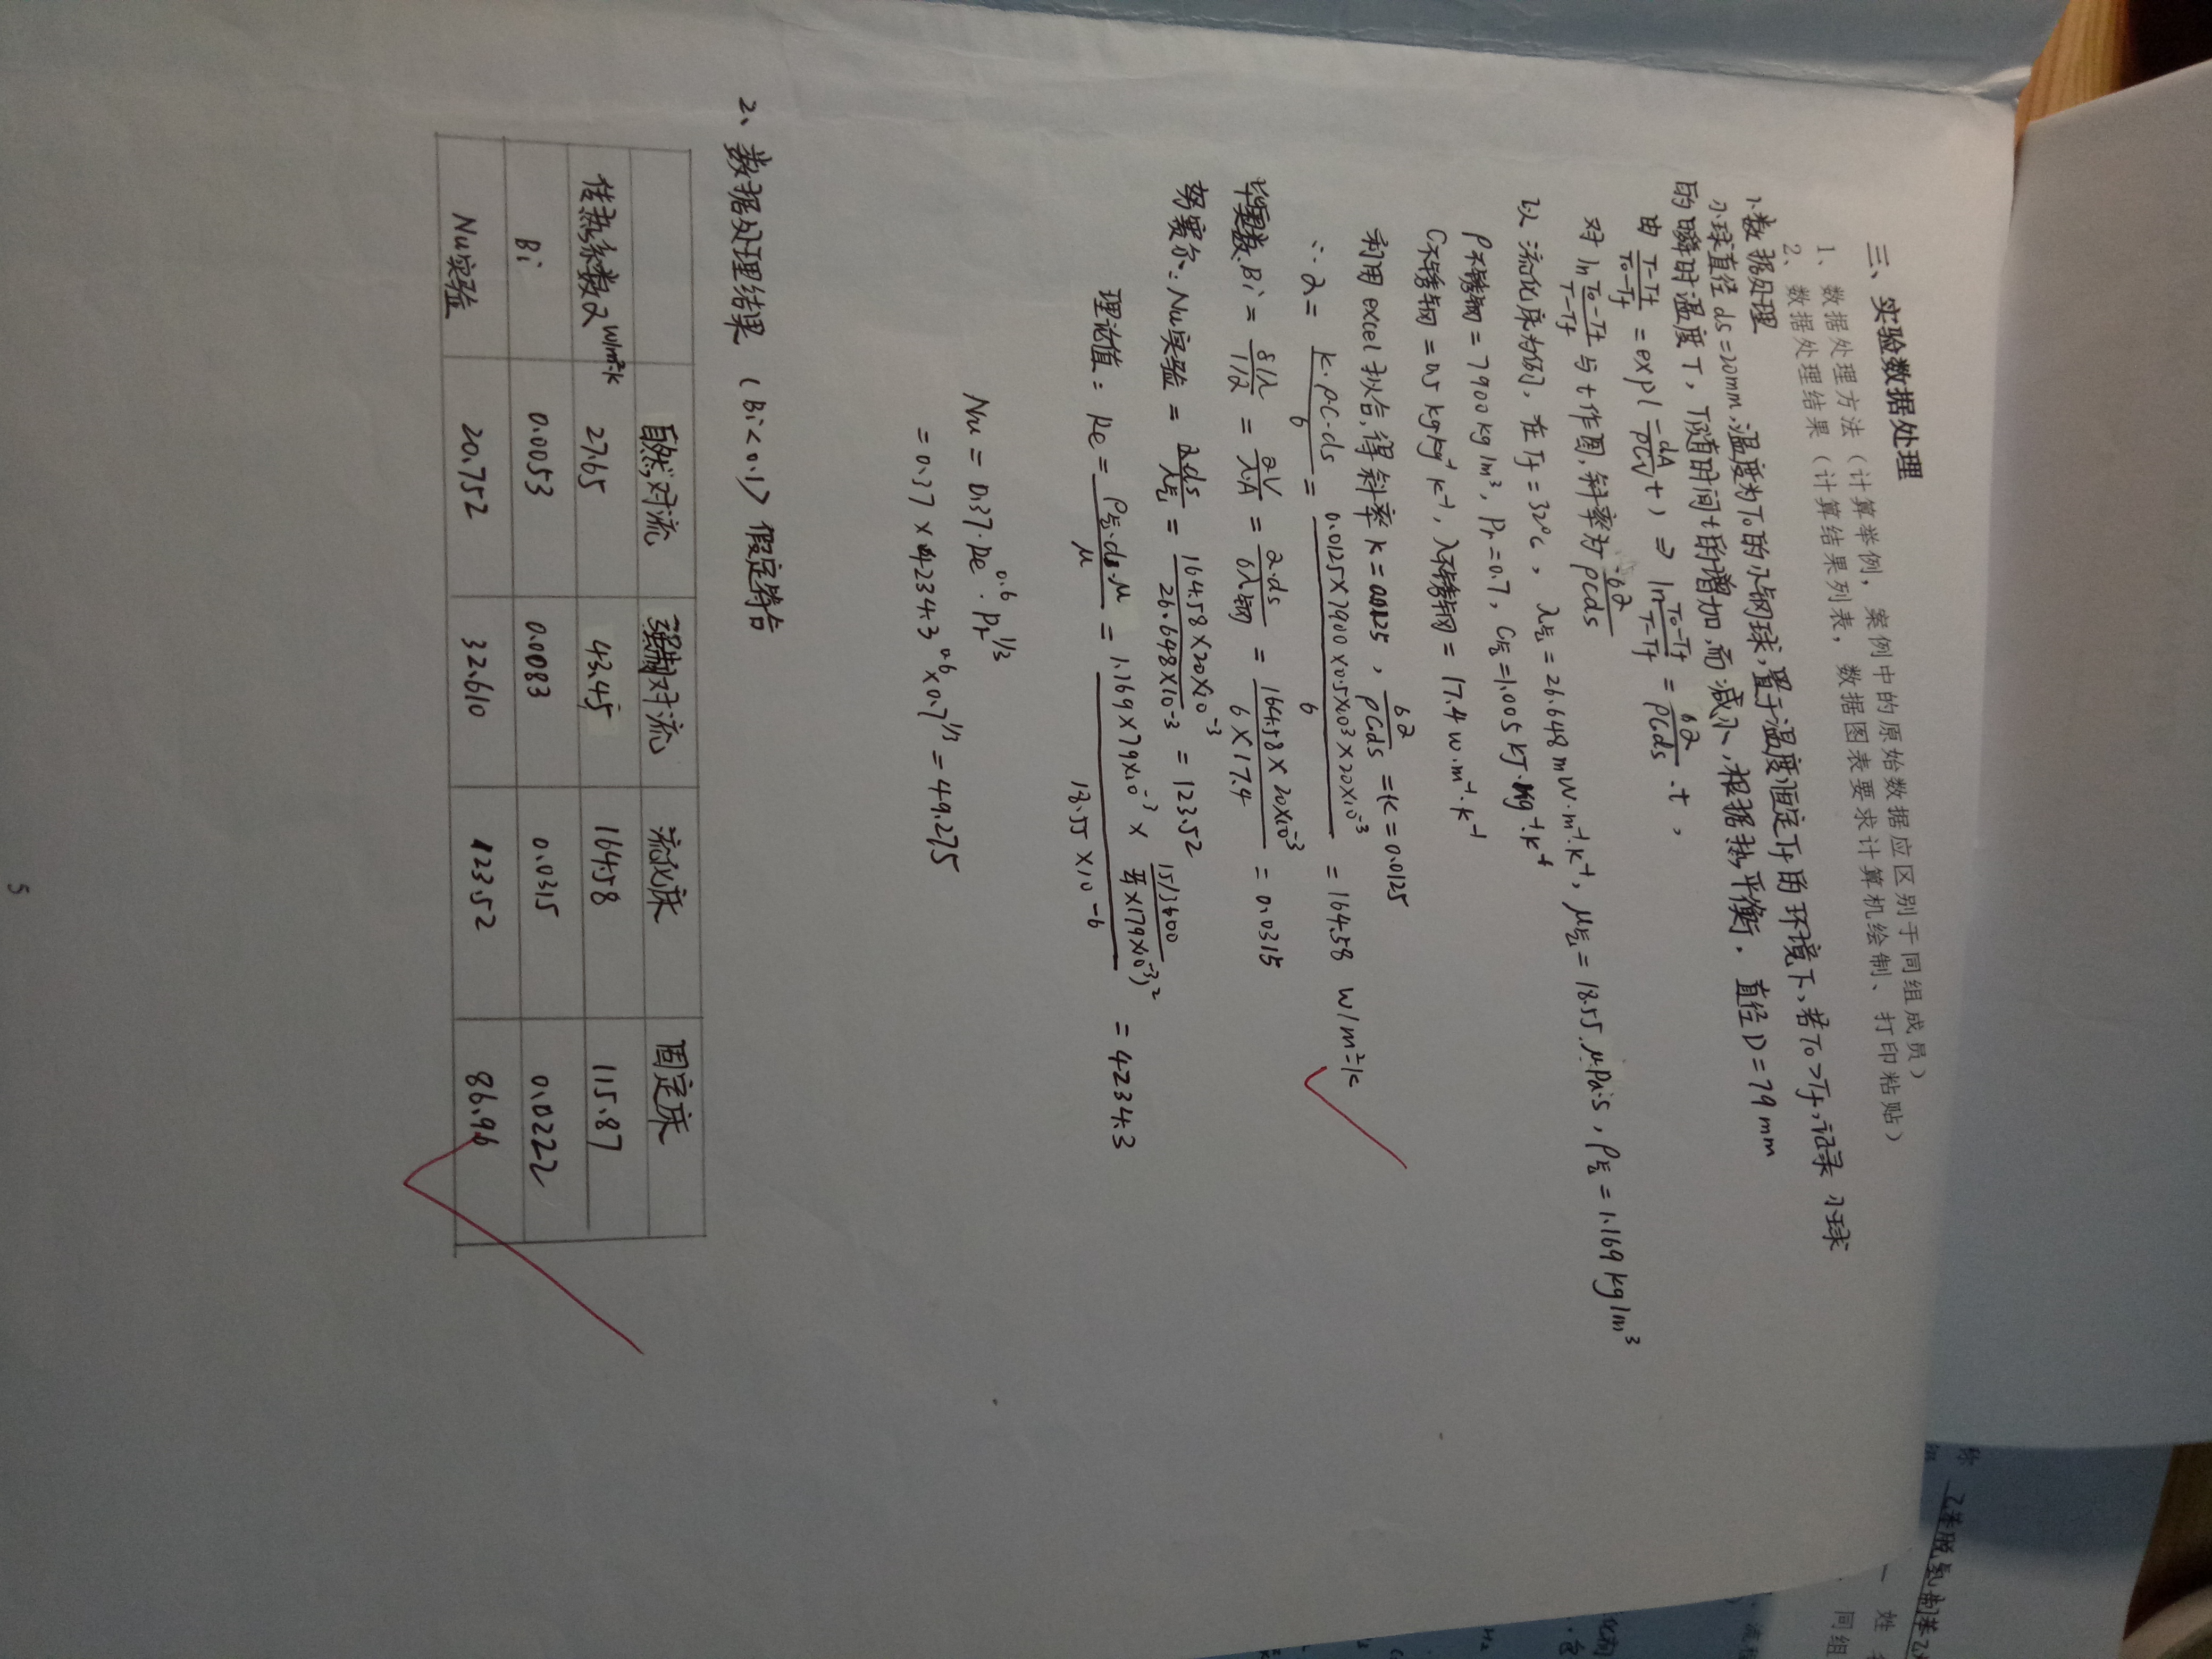 三、实验数据处理
1、数据处理方法（计算举例，案例中的原始数据应区别于同组成员）
2、数据处理结果（计算结果列表，数据图表要求计算机绘制、打印粘贴）
1、数据处理
小球直径ds=20mm,温度为T₀的小钢球,置于温度恒定Tf的环境下,若T₀>Tf,记录 小球
的瞬时温度T, T随时间t的增加,而减小,根据热平衡. 直径D=79mm
由 (T-Tf)/(T₀-Tf) = exp(-αA/ρCV t) ⇒ ln (T₀-Tf)/(T-Tf) = 6α/ρCds ·t ,
对 ln (T₀-Tf)/(T-Tf) 与t作图,斜率为 6α/ρCds
以流化床为例, 在Tf=32℃, λ气=26.648mW·m⁻¹·K⁻¹, μ气=18.55μPa·S, ρ气=1.169kg/m³
ρ不锈钢=7900kg/m³, Pr=0.7, C气=1.005KJ·kg⁻¹·K⁻¹
C不锈钢=0.5kg·kg⁻¹K⁻¹, λ不锈钢=17.4w·m⁻¹·k⁻¹
利用excel拟合,得斜率K=0.0125, 6α/ρCds =K=0.0125
∴α= K·ρ·C·ds/6 = 0.0125×7900×0.5×10³×20×10⁻³/6 = 164.58 W/m²·k
毕奥数:Bi = (δ/λ)/(1/α) = αV/λA = α·ds/6λ钢 = 164.58×20×10⁻³/6×17.4 = 0.0315
努赛尔:Nu实验 = α·ds/λ气 = 164.58×20×10⁻³/26.648×10⁻³ = 123.52
理论值: Re= ρ气·ds·μ/μ = 1.169×79×10⁻³×(15/3600)/(π/4×(79×10⁻³)²)/18.55×10⁻⁶ = 4234.3
Nu = 0.37·Re^0.6·Pr^1/3
= 0.37×4234.3^0.6×0.7^1/3=49.275
2、数据处理结果 (Bi<0.1) 假定符合
自然对流 强制对流 流化床 固定床
传热系数α W/m²·k 27.65 43.45 164.58 115.87
Bi 0.0053 0.0083 0.0315 0.0222
Nu实验 20.752 32.610 123.52 86.96
5
称 乙苯脱氢制苯乙
姓
同组
流程